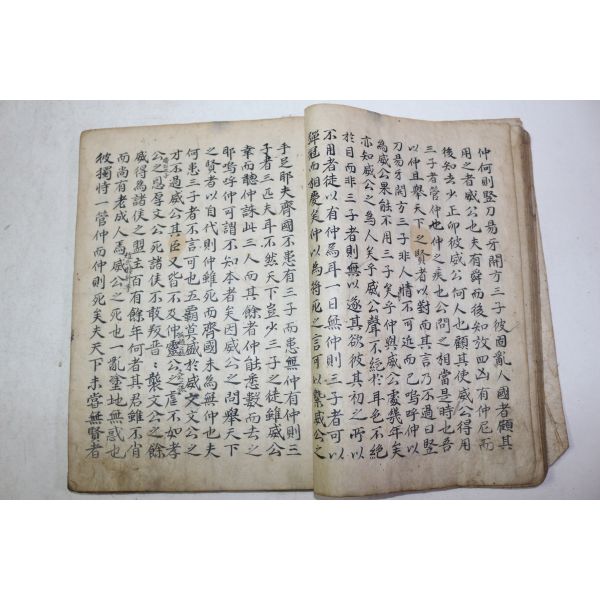 仲何則竪刀易牙開方三子彼固亂人國者顧其
用之者威公也夫有舜而後知放四凶有仲尼而
後知去少正卯彼威公何人也顧其使威公得用
三子者管仲也仲之疾也公問之相當是時也吾
以仲且舉天下之賢者以對而其言乃不過曰竪
刀易牙開方三子非人情不可近而已嗚呼仲以
為威公果能不用三子矣乎仲與威公處幾年矣
亦知威公之為人矣乎威公聲不絶於耳色不絶
於目而非三子者則無以遂其欲彼其初之所以
不用者徒以有仲焉耳一日無仲則三子者可以
彈冠而相慶矣仲以為將死之言可以縶威公之
手足耶夫齊國不患有三子而患無仲有仲則三
子者三匹夫耳不然天下豈少三子之徒雖威公
幸而聽仲誅此三人而其餘者仲能悉數而去之
耶嗚呼仲可謂不知本者矣因威公之問舉天下
之賢者以自代則仲雖死而齊國未為無仲也夫
何患三子者不言可也五霸莫盛於威文文公之
才不過威公其臣又皆不及仲靈公之虐不如孝
公之恩厚文公死諸侯不敢叛晋〻襲文公之餘
威得為諸侯之盟主百有餘年何者其君雖不肖
而尚有老成人焉威公之死也一亂塗地無惑也
彼獨恃一管仲而仲則死矣夫天下未嘗無賢者